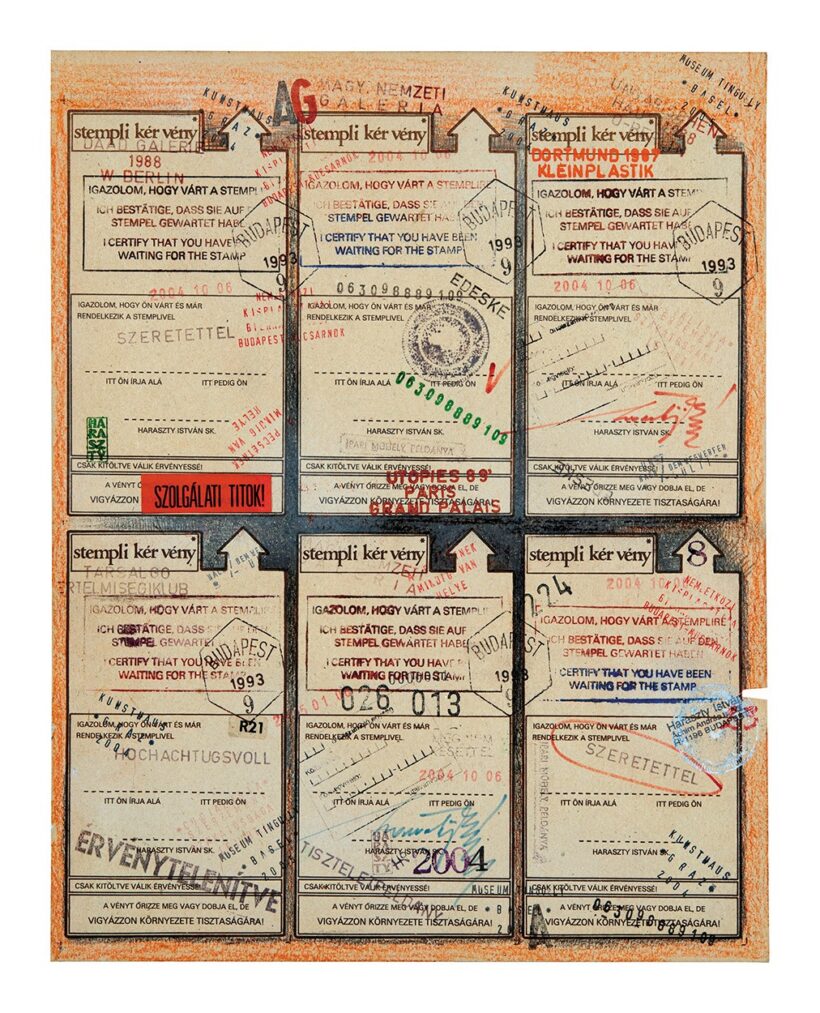 AG
MAGY. NEMZETI
GALERIA
KUNSTHAUS
GRAZ
2004
KUNSTHAUS
MUSEUM TINGUELY
BASEL
stempli kér vény
DAAD GALERIE
1988
W BERLIN
IGAZOLOM, HOGY VÁRT A STEMPLIRE
ICH BESTÄTIGE, DASS SIE AUF
STEMPEL GEWARTET HABEN
I CERTIFY THAT YOU HAVE
WAITING FOR THE STAMP
BUDAPEST
1993
9
2004 10 06
IGAZOLOM, HOGY ÖN VÁRT ÉS MÁR
RENDELKEZIK A STEMPLIVEL
SZERETETTEL
ITT ÖN ÍRJA ALÁ ITT PEDIG ÉN
HARASZTY ISTVÁN SK.
HARASZTY
PECSÉTNEK
MINDIG VAN
HELYE
CSAK KITÖLTVE VÁLIK ÉRVÉNYESSÉ!
A VÉNYT
VIGYÁZZON
SZOLGÁLATI TITOK!
stempli kér vény
2004 10 06
IGAZOLOM, HOGY VÁRT A STEMPLIRE
ICH BESTÄTIGE, DASS SIE AUF
STEMPEL GEWARTET HABEN
I CERTIFY THAT YOU HAVE BEEN
WAITING FOR THE STAMP
BUDAPEST
1993
9
063098889109
EDESKE
IGAZOLOM, HOGY ÖN VÁRT ÉS MÁR
RENDELKEZIK A STEMPLIVEL
063098889109
ITT ÖN ÍRJA ALÁ ITT PEDIG ÉN
HARASZTY ISTVÁN SK.
IPARI MŰHELY PÉLDÁNYA
CSAK KITÖLTVE VÁLIK ÉRVÉNYESSÉ!
A VÉNYT ŐRIZZE MEG VAGY DOBJA EL, DE
VIGYÁZZON KÖRNYEZETE TISZTASÁGÁRA!
UTOPIES 89'
PARIS
GRAND PALAIS
stempli kér vény
DORTMUND 1987
KLEINPLASTIK
IGAZOLOM, HOGY VÁRT A STEMPLIRE
ICH BESTÄTIGE, DASS SIE AUF
STEMPEL GEWARTET HABEN
I CERTIFY THAT YOU HAVE BEEN
WAITING FOR THE STAMP
BUDAPEST
1993
9
2004 10 06
IGAZOLOM, HOGY ÖN VÁRT ÉS MÁR
RENDELKEZIK A STEMPLIVEL
ITT ÖN ÍRJA ALÁ ITT PEDIG ÉN
HARASZTY ISTVÁN SK.
CSAK KITÖLTVE VÁLIK ÉRVÉNYESSÉ!
A VÉNYT ŐRIZZE MEG VAGY DOBJA EL, DE
VIGYÁZZON KÖRNYEZETE TISZTASÁGÁRA!
stempli kér vény
TÁRSALGÓ
ÉRTELMISÉGIKLUB
IGAZOLOM, HOGY VÁRT A STEMPLIRE
ICH BESTÄTIGE, DASS SIE AUF
STEMPEL GEWARTET
I CERTIFY THAT YOU HAVE
WAITING FOR THE STAMP
BUDAPEST
1993
9
KUNSTHAUS
GRAZ
2004
R21
IGAZOLOM, HOGY ÖN VÁRT ÉS MÁR
RENDELKEZIK A STEMPLIVEL
HOCHACHTUGSVOLL
ITT ÖN ÍRJA ALÁ ITT PEDIG ÉN
HARASZTY ISTVÁN SK.
ÉRVÉNYTELENÍTVE
MUSEUM TINGUELY
BASEL
CSAK KITÖLTVE VÁLIK ÉRVÉNYESSÉ!
A VÉNYT ŐRIZZE MEG VAGY DOBJA EL, DE
VIGYÁZZON KÖRNYEZETE TISZTASÁGÁRA!
stempli kér vény
IGAZOLOM, HOGY VÁRT A STEMPLIRE
ICH BESTÄTIGE, DASS SIE AUF
STEMPEL GEWARTET HABEN
I CERTIFY THAT YOU HAVE
WAITING FOR THE STAMP
BUDAPEST
1993
9
026 013
IGAZOLOM, HOGY ÖN VÁRT ÉS MÁR
RENDELKEZIK A STEMPLIVEL
2004 10 06
ITT ÖN ÍRJA ALÁ ITT PEDIG ÉN
HARASZTY ISTVÁN
2004
TISZTELETPÉLDÁNY
CSAK KITÖLTVE VÁLIK ÉRVÉNYESSÉ!
A VÉNYT ŐRIZZE MEG VAGY DOBJA EL, DE
VIGYÁZZON KÖRNYEZETE TISZTASÁGÁRA!
stempli kér vény
8
224
2004 10 06
IGAZOLOM, HOGY VÁRT A STEMPLIRE
ICH BESTÄTIGE, DASS SIE AUF DEN
STEMPEL GEWARTET HABEN
I CERTIFY THAT YOU HAVE BEEN
WAITING FOR THE STAMP
Haraszty István
H-1196 BUDAPEST
IGAZOLOM, HOGY ÖN VÁRT ÉS MÁR
RENDELKEZIK A STEMPLIVEL
SZERETETTEL
IPARI MŰHELY PÉLDÁNYA
ITT ÖN ÍRJA ALÁ ITT PEDIG ÉN
HARASZTY ISTVÁN SK.
KUNSTHAUS
GRAZ
2004
CSAK KITÖLTVE VÁLIK ÉRVÉNYESSÉ!
A VÉNYT ŐRIZZE MEG VAGY DOBJA EL, DE
VIGYÁZZON KÖRNYEZETE TISZTASÁGÁRA!
063098889109
A